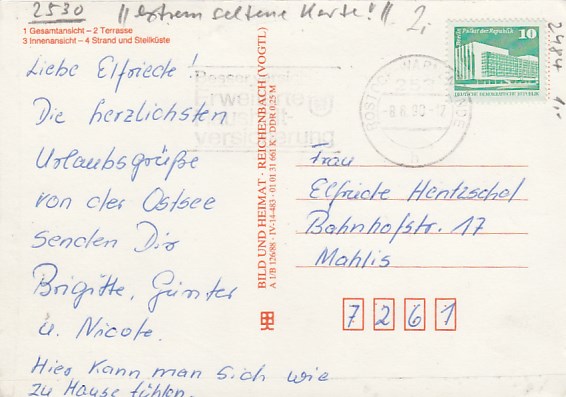 2530 "extrem seltene Karte!" 2,-
1 Gesamtansicht – 2 Terrasse
3 Innenansicht – 4 Strand und Steilküste
Liebe Elfriede!
Die herzlichsten
Urlaubsgrüße
von der Ostsee
senden Dir
Brigitte, Günter
u. Nicole.
Hier kann man sich wie
zu Hause fühlen.
BILD UND HEIMAT · REICHENBACH (VOGTL)
A 1/B 126/88 · IV-14-483 · 01 01 31 661 K · DDR 0,25 M
erweiterte
versicherung
ROSTOCK-WARNEMÜNDE
-8.6.90-17
Berlin, Palast der Republik
10
DEUTSCHE DEMOKRATISCHE REPUBLIK
2484
Frau
Elfriede Hentzschol
Bahnhofstr. 17
Mahlis
7261